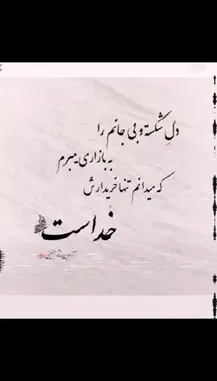 دلِ شکسته و بی جانم را
به بازاری میبرم
که میدانم تنها خریدارش
خداست